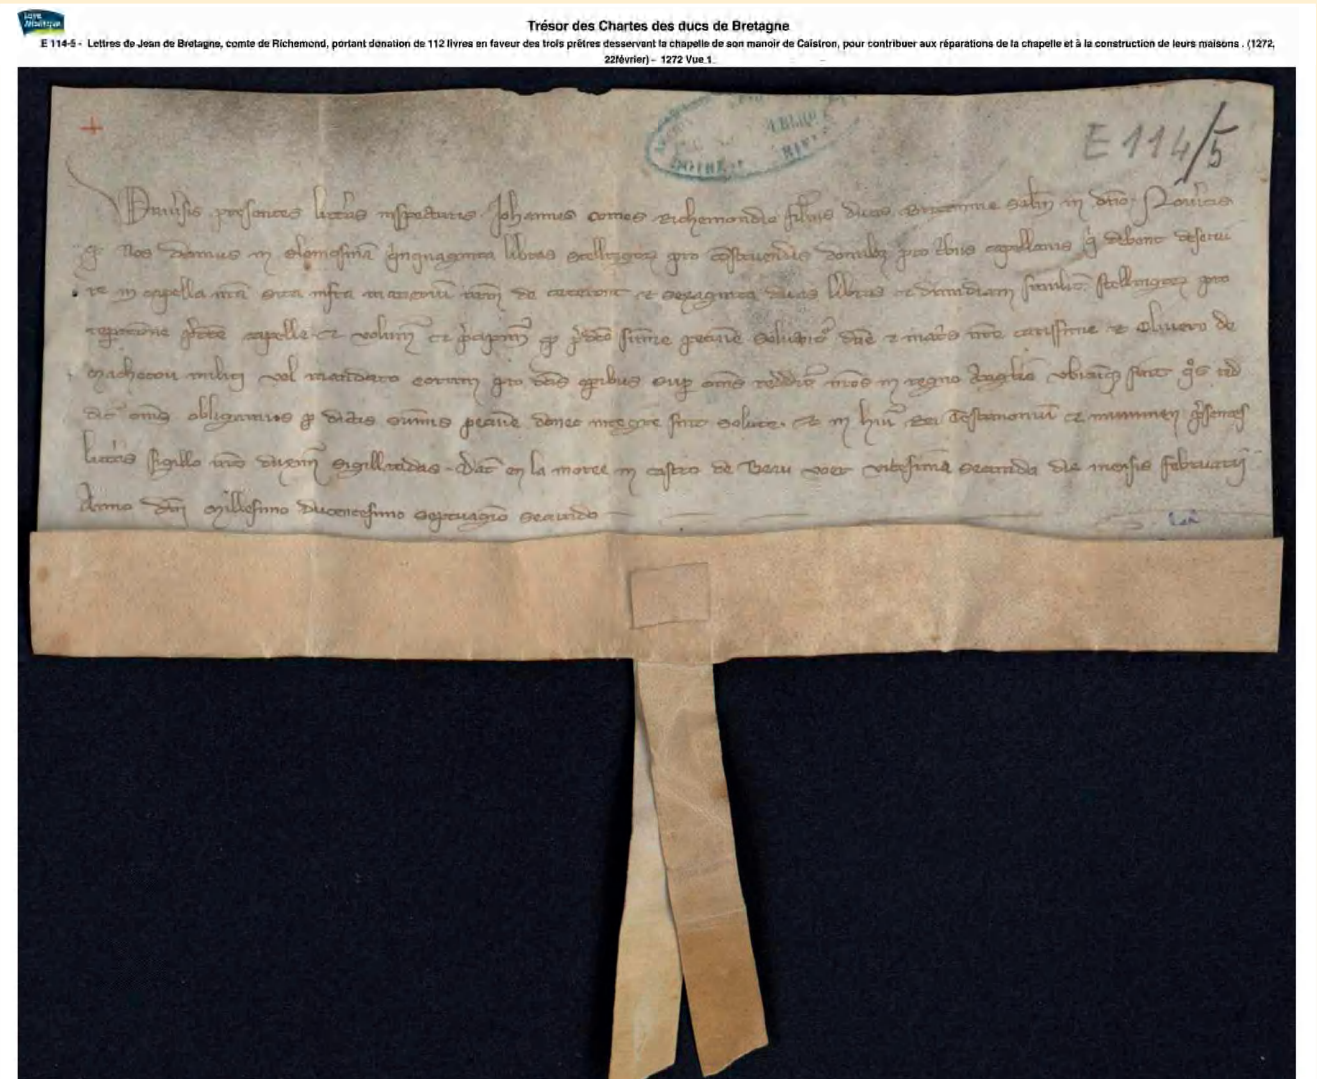 Loire Atlantique
Trésor des Chartes des ducs de Bretagne
E 114-5 - Lettres de Jean de Bretagne, comte de Richemond, portant donation de 112 livres en faveur des trois prêtres desservant la chapelle de son manoir de Caistron, pour contribuer aux réparations de la chapelle et à la construction de leurs maisons . (1272,
22février) - 1272 Vue 1
E 114/5
Univ̄sis presentes litt̄as inspecturis Johannes comes Richemondie filius ducis Britannie saltm in dn̄o. Nov̄itis
q̄ Nos damus in elemosinā q̄nquaginta libras st̄lingoꝝ pro cōstruendis domibꝫ pro t̄bus capellanis q̄ debent deservi
re in capella nr̄a sita infra maneriū nr̄m de et sexaginta duas libras et dimidiam st̄lingoꝝ pro
rep̄acione p̄dc̄e capelle et volum̄ et p̄cipim̄ q̄ p̄dc̄e sum̄e pecunie dn̄e r̄ mat̄s nr̄e carissime et Olivero de
Machecou militi vel mandato eorum pro dc̄is op̄ibus sup̄ om̄s reddit̄ nr̄os in regno Anglie ubicūq̄ sint q̄s red
dit̄ om̄s obligamus p̄ dictis sum̄is pecunie donec integre sint solute. et in huī rei testimoniū et munimen p̄sentes
litt̄as sigillo nr̄o sigillatas. Dat̄ en la in castro de vicesima secunda die mensis februarij
Anno dn̄i Millesimo ducentesimo septuagīo secundo